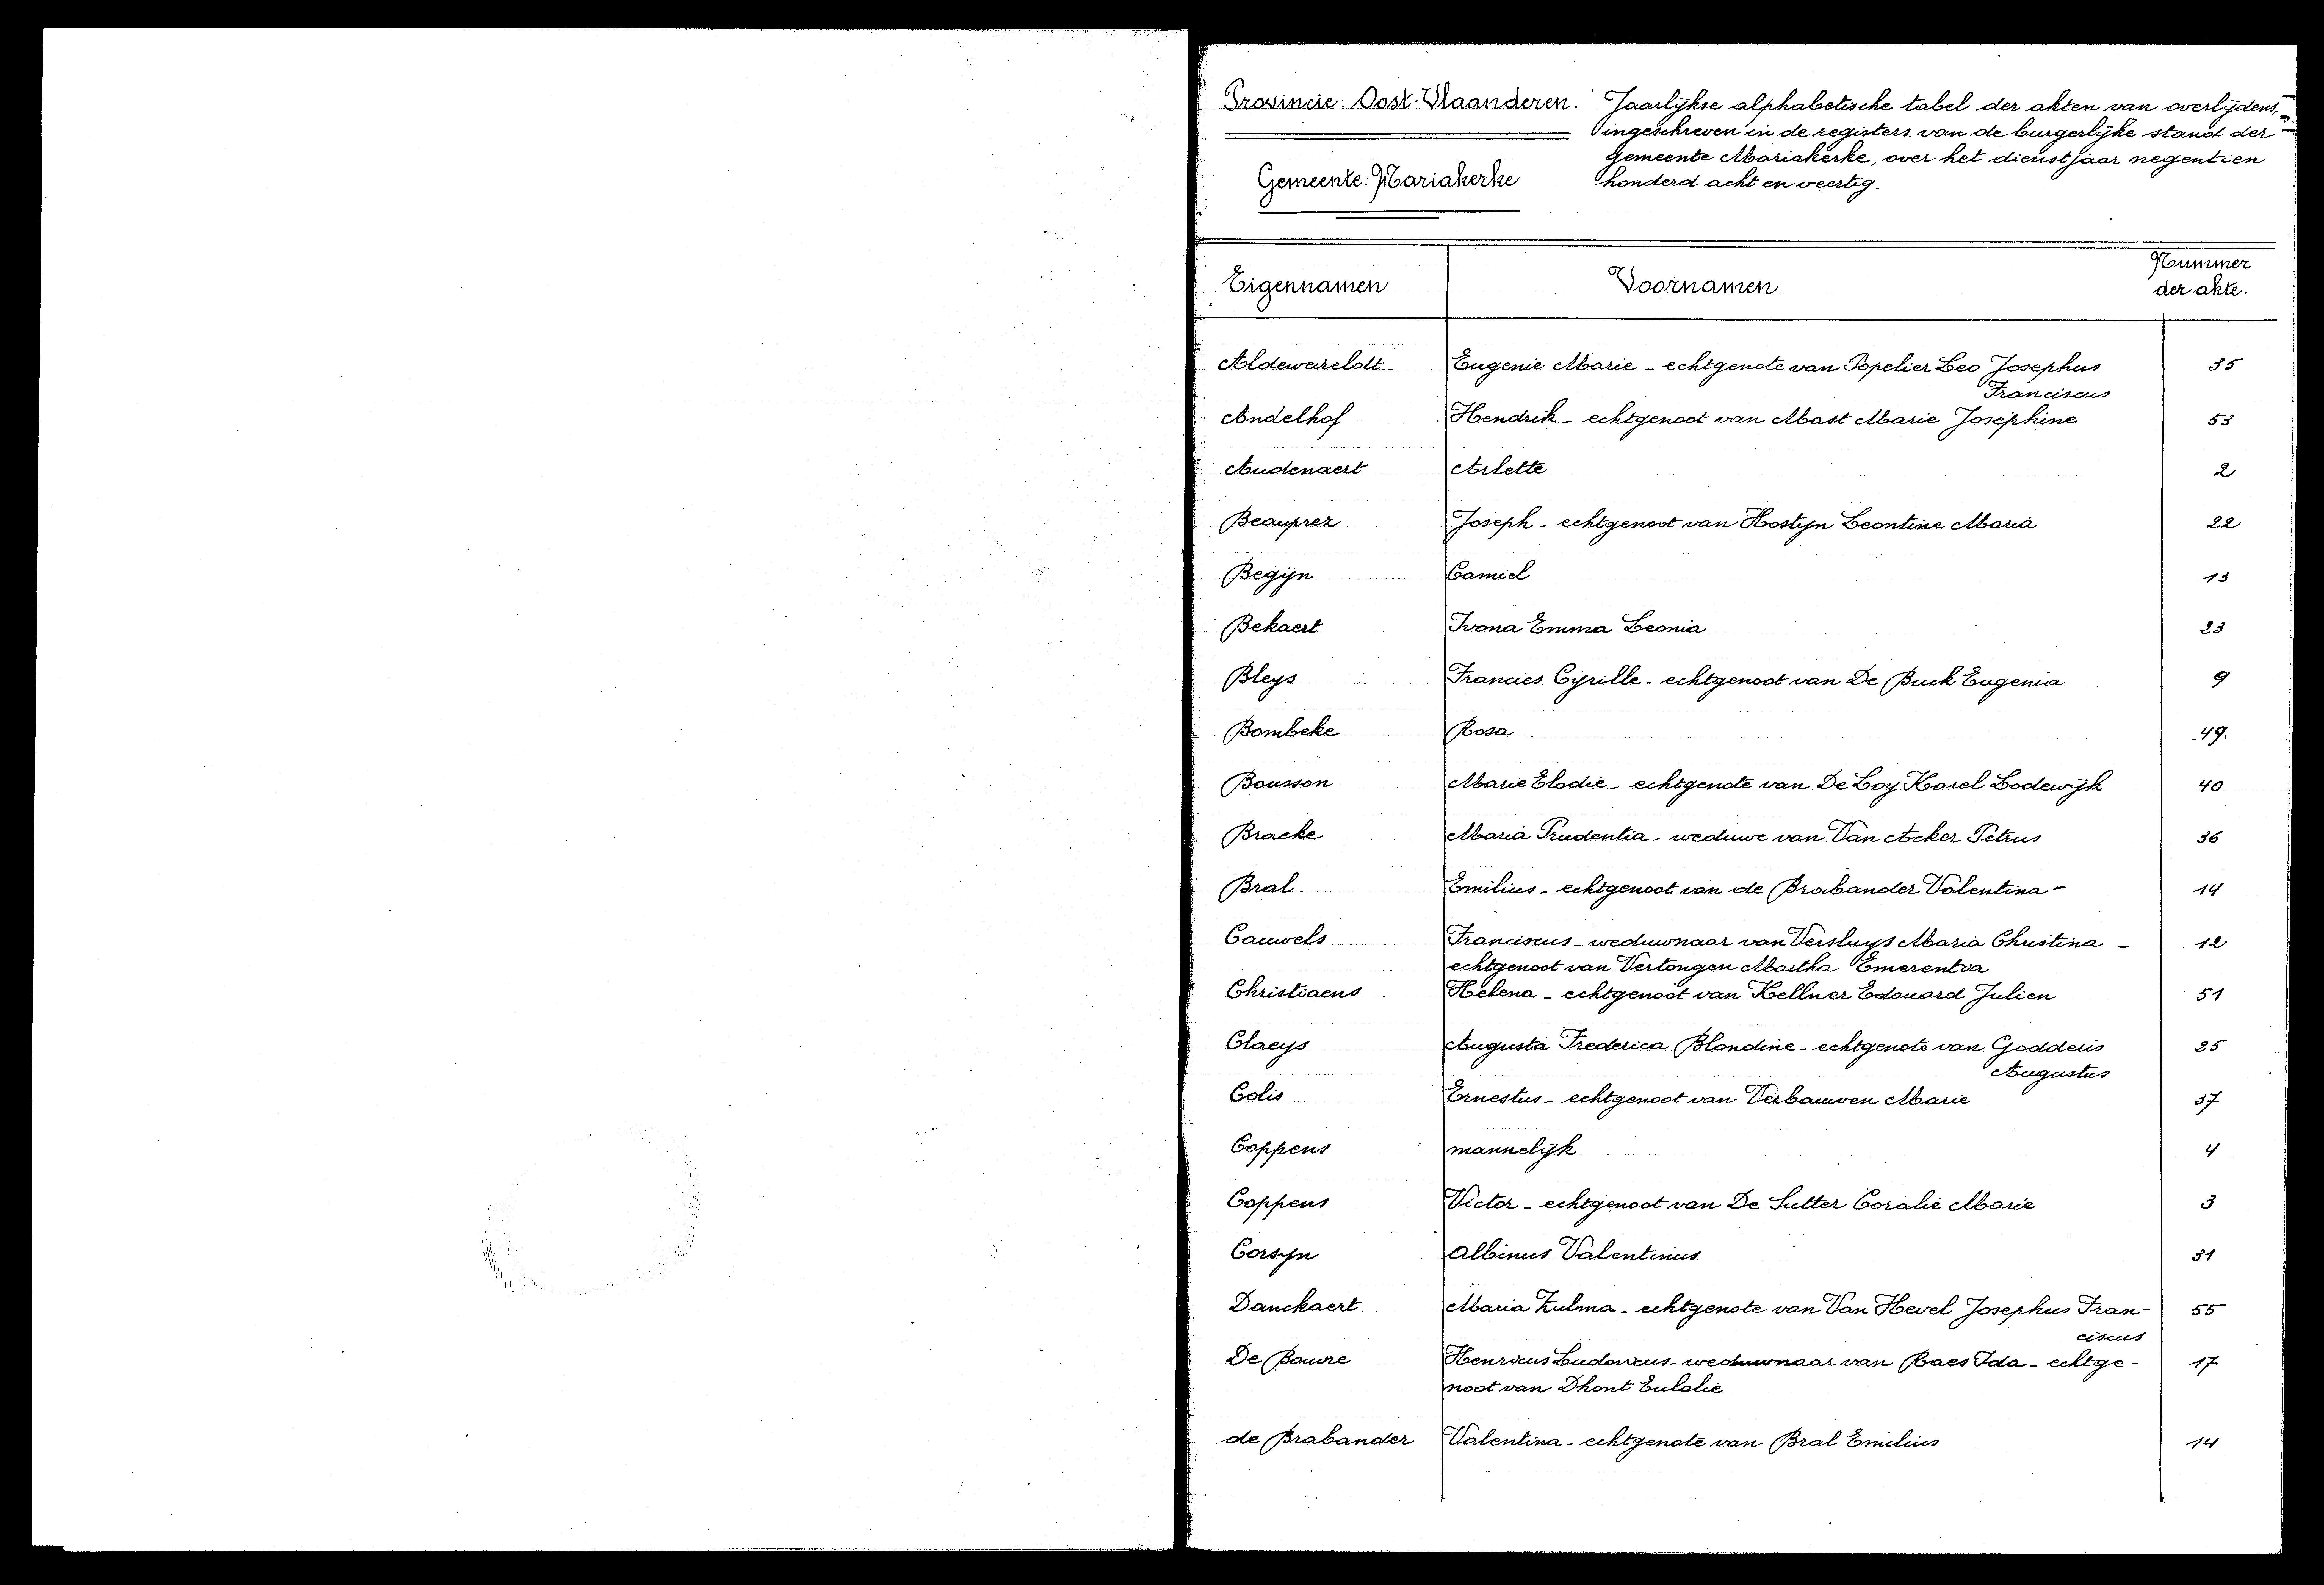 Provincie: Oost-Vlaanderen.
Gemeente: Mariakerke
Jaarlijkse alphabetische tabel der akten van overlijdens,
ingeschreven in de registers van de burgerlijke stand der
gemeente Mariakerke, over het dienstjaar negentien
honderd acht en veertig.
Eigennamen Voornamen Nummer
der akte.
Aldeweireldt Eugenie Marie - echtgenote van Popelier Leo Josephus 35
Franciscus
Andelhof Hendrik - echtgenoot van Mast Marie Josephine 53
Audenaert Arlette 2
Beauprez Joseph - echtgenoot van Hostyn Leontine Maria 22
Begijn Camiel 13
Bekaert Ivona Emma Leonia 23
Bleys Francies Cyrille - echtgenoot van De Buck Eugenia 9
Bombeke Rosa 49.
Bousson Marie Elodie - echtgenote van De Loy Karel Lodewijk 40
Bracke Maria Prudentia - weduwe van Van Acker Petrus 36
Bral Emilius - echtgenoot van de Brabander Valentina - 14
Cauwels Franciscus - weduwnaar van Versluys Maria Christina - 12
echtgenoot van Vertongen Martha Emerentia
Christiaens Helena - echtgenoot van Kellner Edouard Julien 51
Claeys Augusta Frederica Blondine - echtgenote van Godderis 25
Augustus
Colis Ernestus - echtgenoot van Verbauwen Marie 37
Coppens mannelijk 4
Coppens Victor - echtgenoot van De Sutter Coralie Marie 3
Corsyn Albinus Valentinus 31
Danckaert Maria Zulma - echtgenote van Van Hevel Josephus Fran- 55
ciscus
De Bauwe Henricus Ludovicus - weduwnaar van Raes Ida - echtge- 17
noot van Dhont Eulalie
de Brabander Valentina - echtgenote van Bral Emilius 14